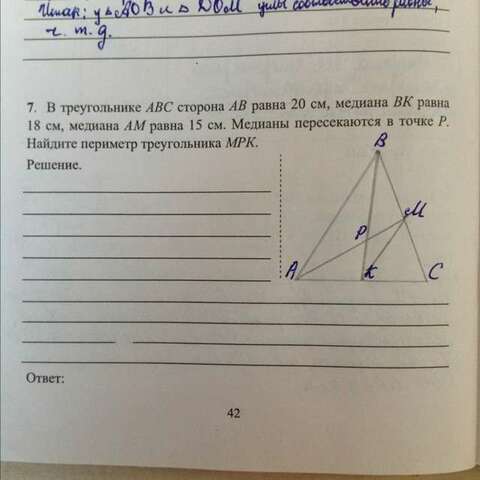 Итак; у △ AOB и △ DOM углы соответственно равны,
ч. т. д.
7. В треугольнике ABC сторона AB равна 20 см, медиана BK равна
18 см, медиана AM равна 15 см. Медианы пересекаются в точке P.
Найдите периметр треугольника MPK.
Решение.
B
M
P
A
K
C
Ответ:
42